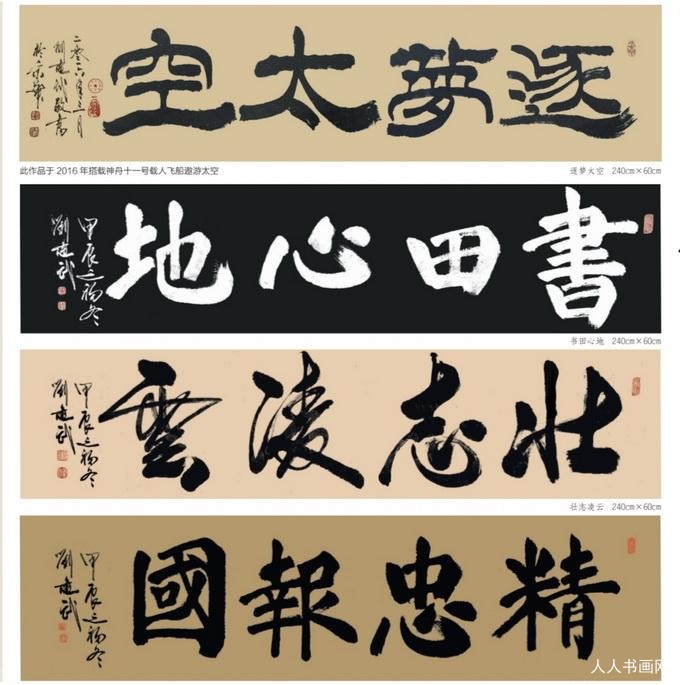 逐夢太空
二零一六年三月
劉建武敬書
於京華
此作品于 2016 年搭载神舟十一号载人飞船遨游太空
逐梦太空 240cm×60cm
書田心地
甲辰之初冬
劉建武
书田心地 240cm×60cm
壯志凌雲
甲辰之初冬
劉建武
壮志凌云 240cm×60cm
精忠報國
甲辰之初冬
劉建武
人人书画网